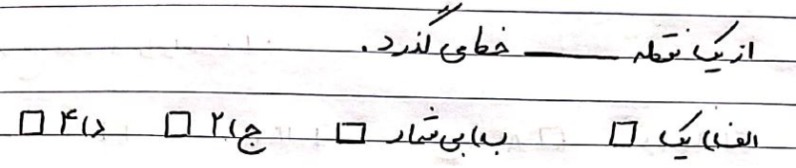 از یک نقطه ـــــــ خط می گذرد.
الف) یک □ ب) بی شمار □ ج) ۲ □ د) ۴ □